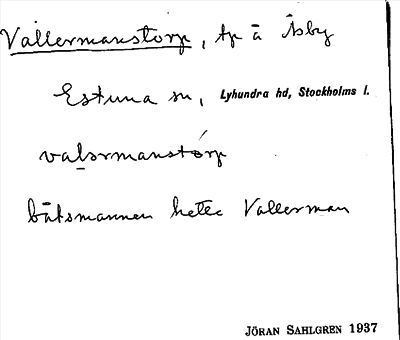 Vallermanstorp, tp å Åsby
Estuna sn, Lyhundra hd, Stockholms l.
valərmanstórp
båtsmannen heter Vallerman
JÖRAN SAHLGREN 1937